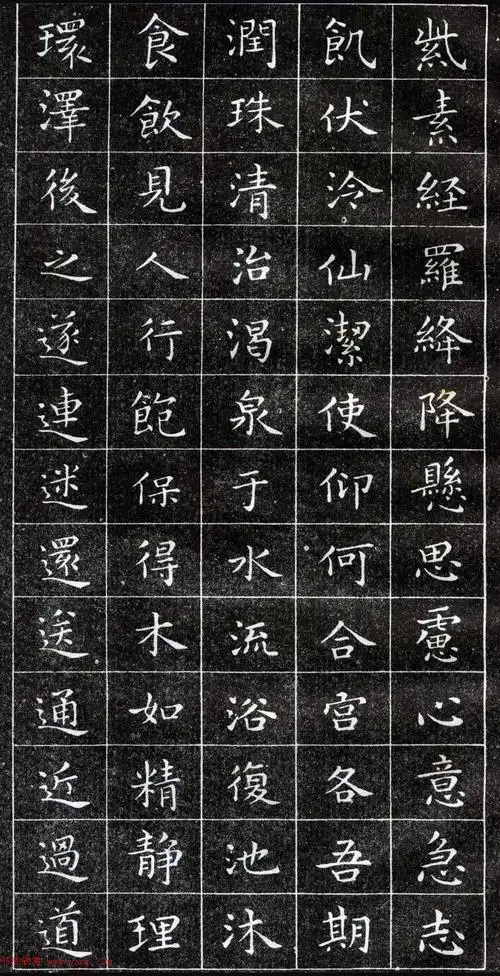 紫素経羅絳降懸思慮心意急志
飢伏泠仙潔使仰何合宮各吾期
潤珠清治渴泉于水流浴復池沐
食飲見人行飽保得木如精静理
環澤後之遂連迷還送通近過道